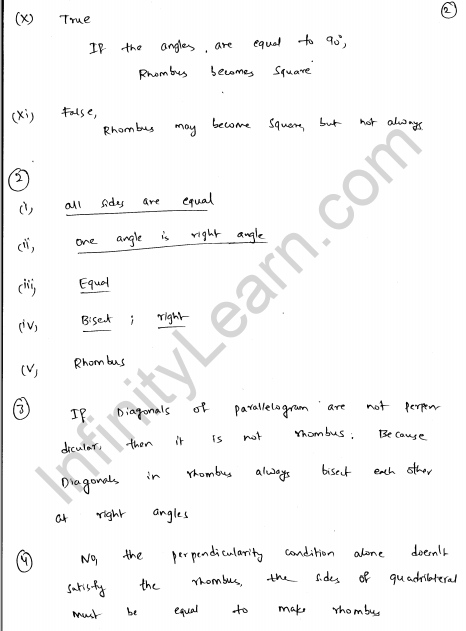 ②
(x) True
If the angles are equal to 90°,
Rhombus becomes square
(xi) False,
Rhombus may become square, but not always
②
(i) all sides are equal
(ii) one angle is right angle
(iii) Equal
(iv) Bisect ; right
(v) Rhombus
③ If Diagonals of parallelogram are not perpen
dicular, then it is not rhombus. Because
Diagonals in rhombus always bisect each other
at right angles
④ No, the perpendicularity condition alone doesn't
satisfy the rhombus, the sides of quadrilateral
must be equal to make rhombus
InfinityLearn.com